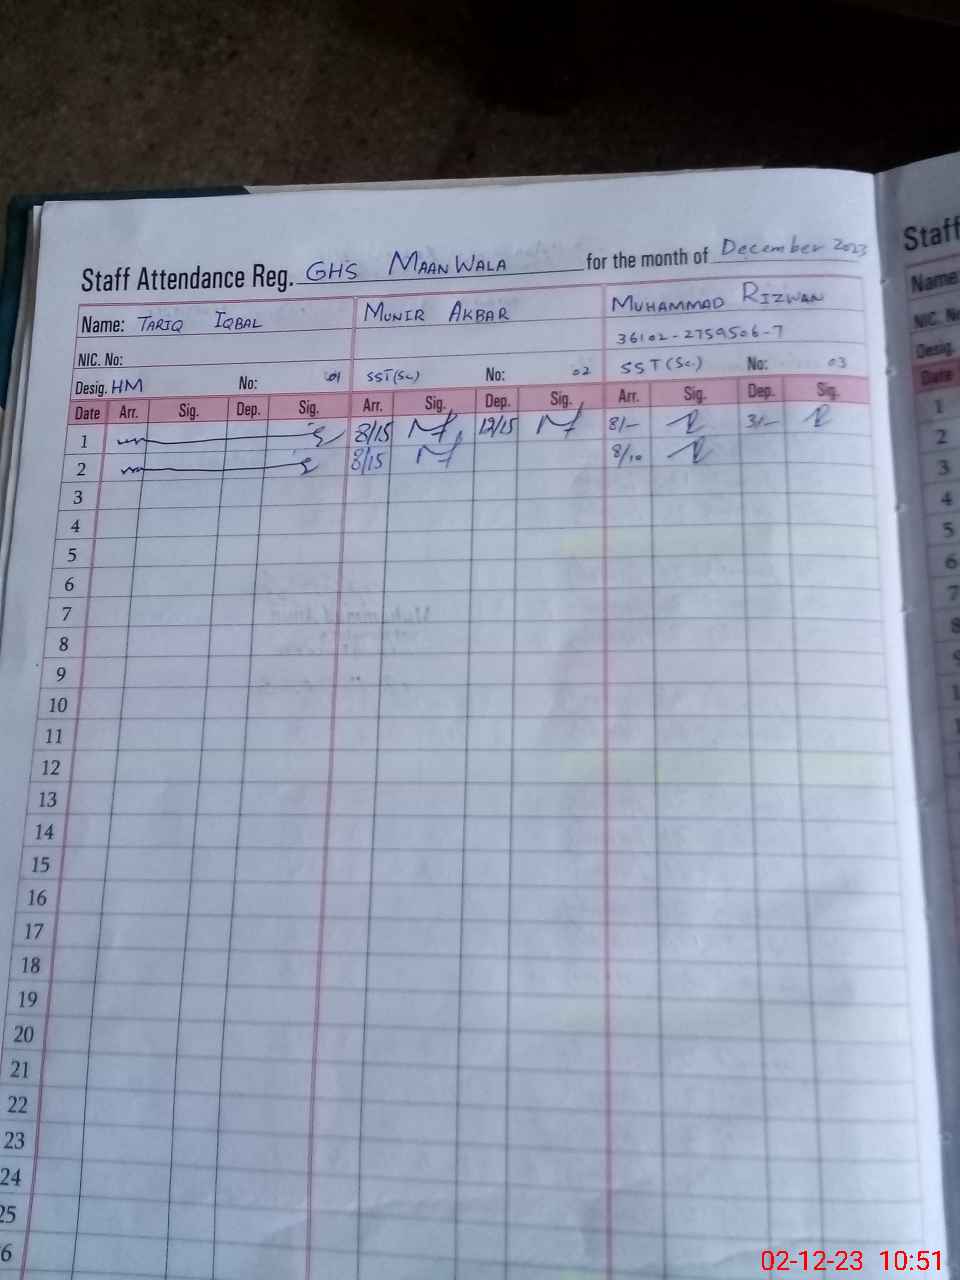 Staff Attendance Reg. GHS MAANWALA for the month of December 2023
Name: TARIQ IQBAL MUNIR AKBAR MUHAMMAD RIZWAN
NIC. No: 36102-2759506-7
Desig. HM No: 01 SST(Sc) No: 02 SST(Sc.) No: 03
Date Arr. Sig. Dep. Sig. Arr. Sig. Dep. Sig. Arr. Sig. Dep. Sig.
1 8/15 12/15 8/- 3/-
2 8/15 8/10
3
4
5
6
7
8
9
10
11
12
13
14
15
16
17
18
19
20
21
22
23
24
25
6
Staff
Name
NIC. No
Desig.
Date
1
2
3
4
5
6
7
8
02-12-23 10:51